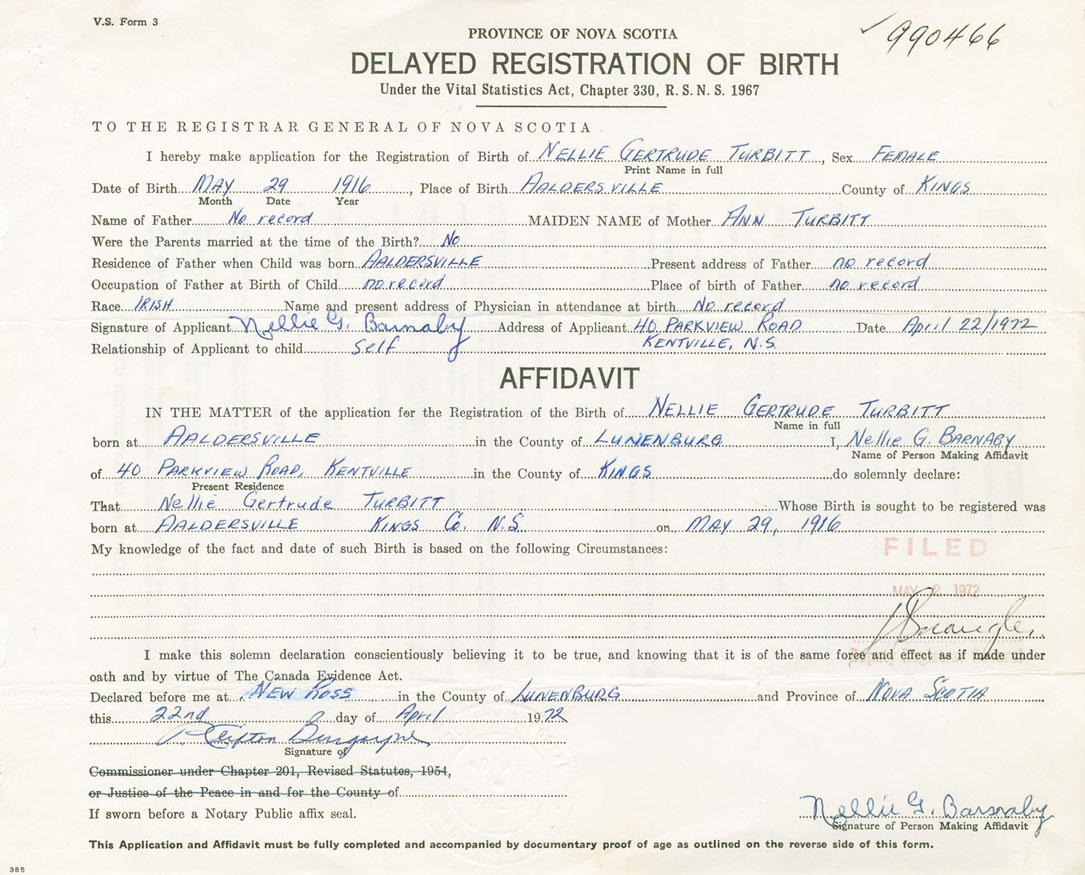 V.S. Form 3
990466
PROVINCE OF NOVA SCOTIA
DELAYED REGISTRATION OF BIRTH
Under the Vital Statistics Act, Chapter 330, R. S. N. S. 1967
TO THE REGISTRAR GENERAL OF NOVA SCOTIA
I hereby make application for the Registration of Birth of NELLIE GERTRUDE TURBITT, Sex FEMALE
Print Name in full
Date of Birth MAY 29 1916, Place of Birth AALDERSVILLE County of KINGS
Month Date Year
Name of Father No record MAIDEN NAME of Mother ANN TURBITT
Were the Parents married at the time of the Birth? No
Residence of Father when Child was born AALDERSVILLE Present address of Father no record
Occupation of Father at Birth of Child no record Place of birth of Father no record
Race IRISH Name and present address of Physician in attendance at birth No record
Signature of Applicant Nellie G. Barnaby Address of Applicant 40 PARKVIEW ROAD Date April 22/1972
Relationship of Applicant to child self KENTVILLE, N.S.
AFFIDAVIT
IN THE MATTER of the application for the Registration of the Birth of NELLIE GERTRUDE TURBITT
Name in full
born at AALDERSVILLE in the County of LUNENBURG I, Nellie G. BARNABY
Name of Person Making Affidavit
of 40 PARKVIEW ROAD, KENTVILLE in the County of KINGS do solemnly declare:
Present Residence
That Nellie Gertrude TURBITT Whose Birth is sought to be registered was
born at AALDERSVILLE KINGS CO. N.S. on MAY 29, 1916
My knowledge of the fact and date of such Birth is based on the following Circumstances:
FILED
MAY 2 1972
I make this solemn declaration conscientiously believing it to be true, and knowing that it is of the same force and effect as if made under
oath and by virtue of The Canada Evidence Act.
Declared before me at NEW ROSS in the County of LUNENBURG and Province of NOVA SCOTIA
this 22nd day of April 1972
Signature of
Commissioner under Chapter 201, Revised Statutes, 1954,
or Justice of the Peace in and for the County of
If sworn before a Notary Public affix seal.
Nellie G. Barnaby
Signature of Person Making Affidavit
This Application and Affidavit must be fully completed and accompanied by documentary proof of age as outlined on the reverse side of this form.
385